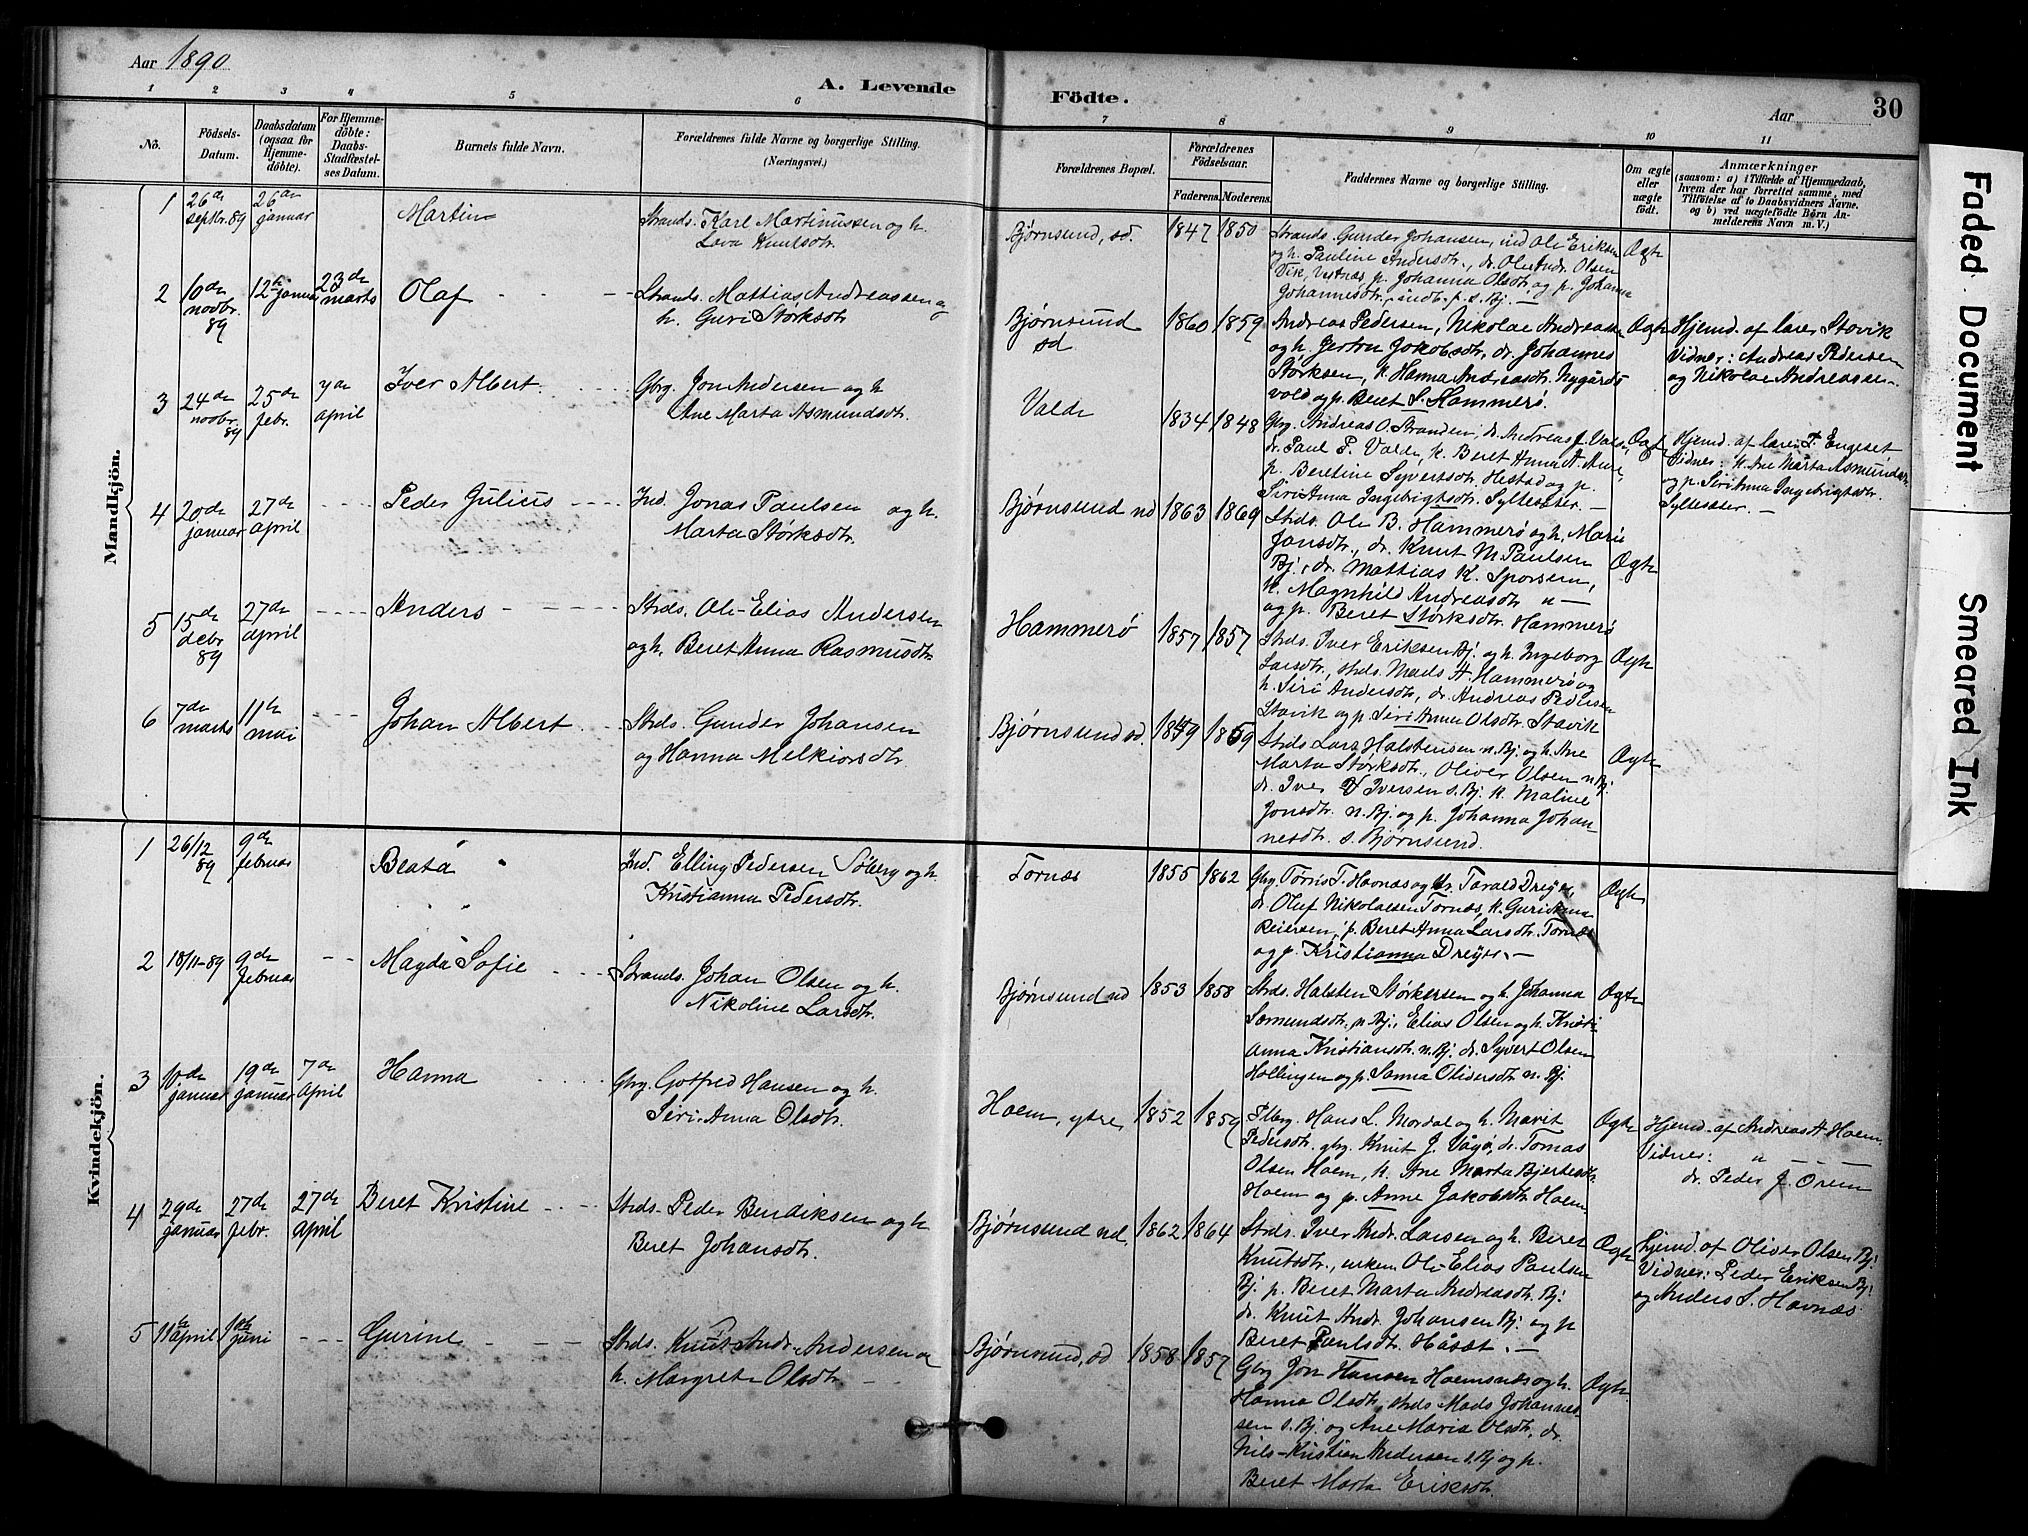 Aar 1890
A. Levende Födte.
Aar
30
1 2 3 4 5 6 7 8 9 10 11
No.
Födsels-Datum.
Daabsdatum (ogsaa for Hjemme-døbte).
For Hjemme-døbte: Daabs-Stadfæstel-ses Datum.
Barnets fulde Navn.
Forældrenes fulde Navne og borgerlige Stilling.
(Næringsvei.)
Forældrenes Bopæl.
Forældrenes Födselsaar.
Faderens. Moderens.
Faddernes Navne og borgerlige Stilling.
Om ægte eller uægte født.
Anmærkninger
(saasom: a) i Tilfælde af Hjemmedaab, hvem der har forrettet samme, med Tilföielse af to Daabsvidners Navne. og b) ved uægtefödte Börn Anmelderens Navn m. V.)
Mandkjön.
1 26de septbr. 89 26de januar Martin
Strands. Karl Martinussen og h.
Lava Knutsdtr.
Bjørnsund, sd. 1847 1850
Strands. Gunder Johansen, ind Ole Eriksen
og h. Pauline Andersdtr., dr. Ole Andr. Olsen
Vik, Vestnæs, p. Johanna Olsdtr. og p. Johanna
Johannesdtr., indb. p. s. Bj. —
Ægte
2 10de novbr. 89 12te januar 23de marts Olaf
Strands. Mattias Andreassen og
h. Guri Størksdtr
Bjørnsund sd. 1860 1859
Andreas Pedersen, Nikolai Andreassen
og h. Gertru Jakobsdtr, dr. Johannes
Størksen, k. Hanna Andreasdtr. Nygårds
vold og p. Beret S. Hammerø.
Ægte
Hjemd. af lærer Stavik
Vidner: Andreas Pedersen
og Nikolai Andreassen.
3 24de novbr. 89 25de febr. 7de april Iver Albert
Gbrg. Jon Andersen og h
Ane Marta Asmundsdtr.
Valde 1834 1848
Gbrg. Andreas O. Stranden, dr. Andreas J. Valde,
dr. Paul P. Valde, k. Beret Anna A. Aure,
p. Beretine Syvertsdtr. Hestad og p.
Siri Anna Ingebrigtsdtr. Syltesæter. —
Ægte
Hjemd. af lærer T. Engeset
Vidner: k. Ane Marta Asmundsd.
og p. Siri Anna Ingebrigtsdtr.
Syltesæter. —
4 20de januar 27de april Peder Gulius
Ind. Jonas Paulsen og h.
Marta Størksdtr.
Bjørnsund nd 1863 1869
Strds. Ole B. Hammerø og h. Marie
Jonsdtr., dr. Knut M. Paulsen
Bj., dr. Mattias K. Sporsem,
k. Magnhild Andreasdtr " —
og p. Beret Størksdtr. Hammerø
Ægte
5 15de debr 89 27de april Anders
Strds. Ole-Elias Andersen
og h. Beret Anna Rasmusdtr.
Hammerø 1857 1857
Strds. Iver Eriksen Bj. og h. Ingeborg
Larsdtr., strds. Mads A. Hammerø og
h. Siri Andersdtr, dr. Andreas Pedersen
Stavik og p. Siri Anna Olsdtr. Stavik
Ægte
6 7de marts 11te mai Johan Albert
Strds. Gunder Johansen
og Hanna Melkiorsdtr.
Bjørnsund sd. 1849 1859
Strds Lars Halstensen n. Bj. og h. Ane
Marta Størksdtr., Oliver Olsen n. Bj.
dr. Iver A Iversen s. Bj. k. Maline
Jonsdtr. n. Bj. og p. Johanna Johan-
nesdtr. s. Bjørnsund.
Ægte
Kvindekjön.
1 26/12 89 9de februar Beata
Ind. Elling Pedersen Søberg og h.
Kristianna Pedersdtr.
Tornæs 1855 1862
Gbrg. Tørris T. Havnæs og dr. Tarald Dreyer,
dr. Oluf Nikolaisen Tornæs, k. Guri Anna
Reiersen, p. Beret Anna Larsdtr. Tornæs
og p. Kristianna Dreyer. —
Ægte
2 18/11-89 9de februar Magda Sofie
Strands. Johan Olsen og h.
Nikoline Larsdtr.
Bjørnsund nd 1853 1858
Strds. Halsten Størkersen og h. Johanna
Samundsdtr. n. Bj., Elias Olsen og h. Kristi-
anna Kristiansdtr. n. Bj. dr. Syvert Olsen
Hollingen og p. Sanna Olidersdtr. n. Bj.
Ægte
3 10de januar 19de januar 7de april Hanna
Gbrg. Gotfred Hansen og h.
Siri-Anna Olsdtr.
Hoem, ytre 1852 1859
Plbrg. Hans L. Mordal og h. Marit
Pedersdtr. gbrg. Knut J. Vågø, dr. Tomas
Olsen Hoem, k. Ane Marta Bjertesdtr.
Hoem og p. Anne Jakobsdtr. Hoem.
Ægte
Hjemd. af Andreas A. Hoem.
Vidner: " — — —
dr. Peder J. Orem
4 29de januar 27de febr. 27de april Beret Kristine
Strds. Peder Bendiksen og h
Beret Johansdtr.
Bjørnsund nd. 1862 1864
Strds. Iver Andr. Larsen og h. Beret
Knutsdtr., enkem. Ole-Elias Paulsen
Bj. p. Beret Marta Andreasdtr. Bj.
dr. Knut Andr. Johansen Bj. og p
Beret Paulsdtr. Håsæt. —
Ægte
Hjemd. af Oliver Olsen Bj.
Vidner: Peder Eriksen Bj.
og Anders S. Havnæs.
5 11te april 1ste juni Gurine
Strds. Knut Andr. Andersen og
h. Margrete Olsdtr.
Bjørnsund, sd 1858 1857
Gbrg Jon Hansen Hoemsnæs og h.
Hanna Olsdtr, strds Mads Johannes-
sen s. Bj. og Ane Maria Olsdtr, dr.
Nils-Kristian Andersen s. Bj og p.
Beret Marta Eriksdtr.
Ægte
Faded Document Smeared Ink